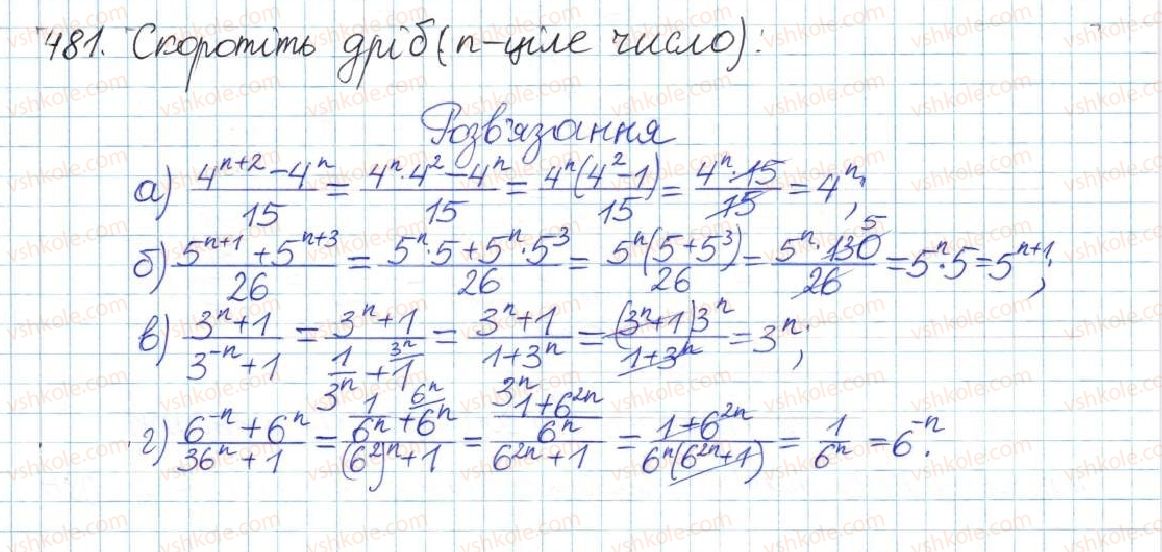 481. Скоротіть дріб (n-ціле число):
Розв'язання
а) \frac{4^{n+2}-4^n}{15} = \frac{4^n·4^2-4^n}{15} = \frac{4^n(4^2-1)}{15} = \frac{4^n·15}{15} = 4^n;
б) \frac{5^{n+1}+5^{n+3}}{26} = \frac{5^n·5+5^n·5^3}{26} = \frac{5^n(5+5^3)}{26} = \frac{5^n·130^5}{26} = 5^n·5 = 5^{n+1};
в) \frac{3^n+1}{3^{-n}+1} = \frac{3^n+1}{\frac{1}{3^n}+\frac{3^n}{1}} = \frac{3^n+1}{\frac{1+3^n}{3^n}} = \frac{(3^n+1)3^n}{1+3^n} = 3^n;
г) \frac{6^{-n}+6^n}{36^n+1} = \frac{\frac{1}{6^n}+\frac{6^n}{6^n}}{(6^2)^n+1} = \frac{\frac{1+6^{2n}}{6^n}}{6^{2n}+1} = \frac{1+6^{2n}}{6^n(6^{2n}+1)} = \frac{1}{6^n} = 6^{-n}.
vshkole.com